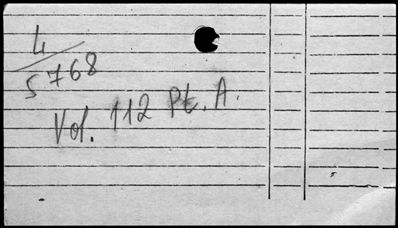 4/5768
Vol. 112 Pt. A.